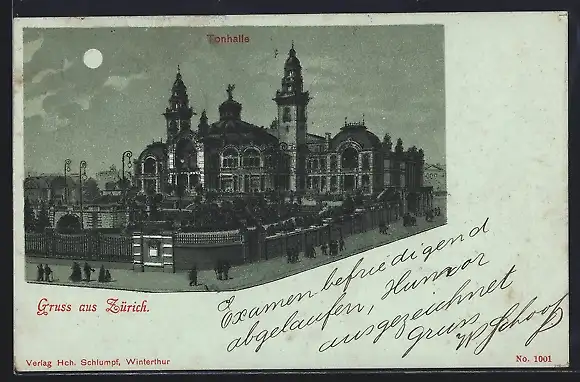 Tonhalle
Gruss aus Zürich.
Examen befriedigend
abgelaufen, Humor
ausgezeichnet
gruss
W Schoof
Verlag Hch. Schlumpf, Winterthur
No. 1001